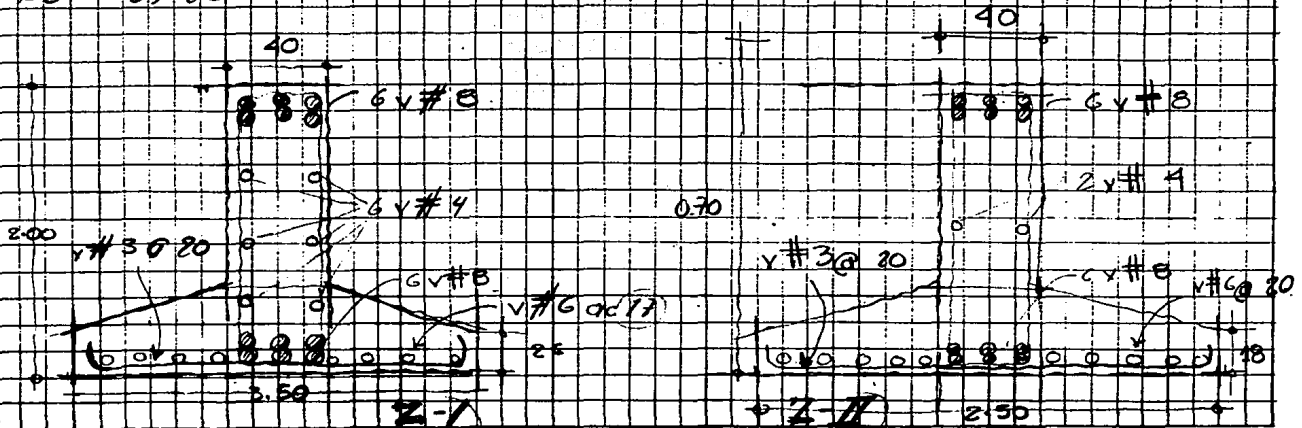 40
6 v # 8
6 v # 4
2.00
v # 3 @ 20
6 v # 8
v # 6 @ 17
25
3.50
Z-I
40
6 v # 8
2 v # 4
0.70
v # 3 @ 20
6 v # 8
v # 6 @ 20
18
2.50
Z-II